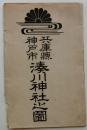 兵庫縣
神戸市
湊川神社之圖